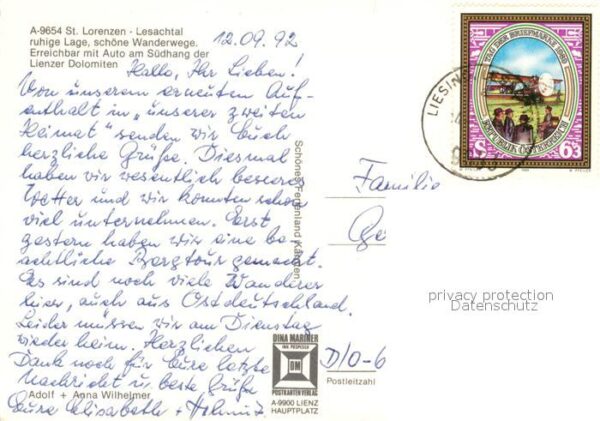 A-9654 St. Lorenzen - Lesachtal
ruhige Lage, schöne Wanderwege.
Erreichbar mit Auto am Südhang der
Lienzer Dolomiten
12.09.92
Hallo, Ihr Lieben!
Von unserem erneuten Auf-
enthalt in "unserer zweiten
Heimat" senden wir Euch
herzliche Grüße. Diesmal
haben wir wesentlich besseres
Wetter und wir konnten schon
viel unternehmen. Erst
gestern haben wir eine be-
achtliche Bergtour gemacht.
Es sind noch viele Wanderer
hier, auch aus Ostdeutschland.
Leider müssen wir am Dienstag
wieder heim. Herzlichen
Dank noch für Eure letzte
Nachricht u. beste Grüße
Adolf + Anna Wilhelmer
Eure Elisabeth + Helmut
Schönes Ferienland Kärnten
LIESIN
TAG DER BRIEFMARKE 1990
REPUBLIK ÖSTERREICH
S 6+3
Familie
Ge
privacy protection
Datenschutz
D/O-6
Postleitzahl
DINA MARINER
DM
POSTKARTENVERLAG
A-9900 LIENZ
HAUPTPLATZ